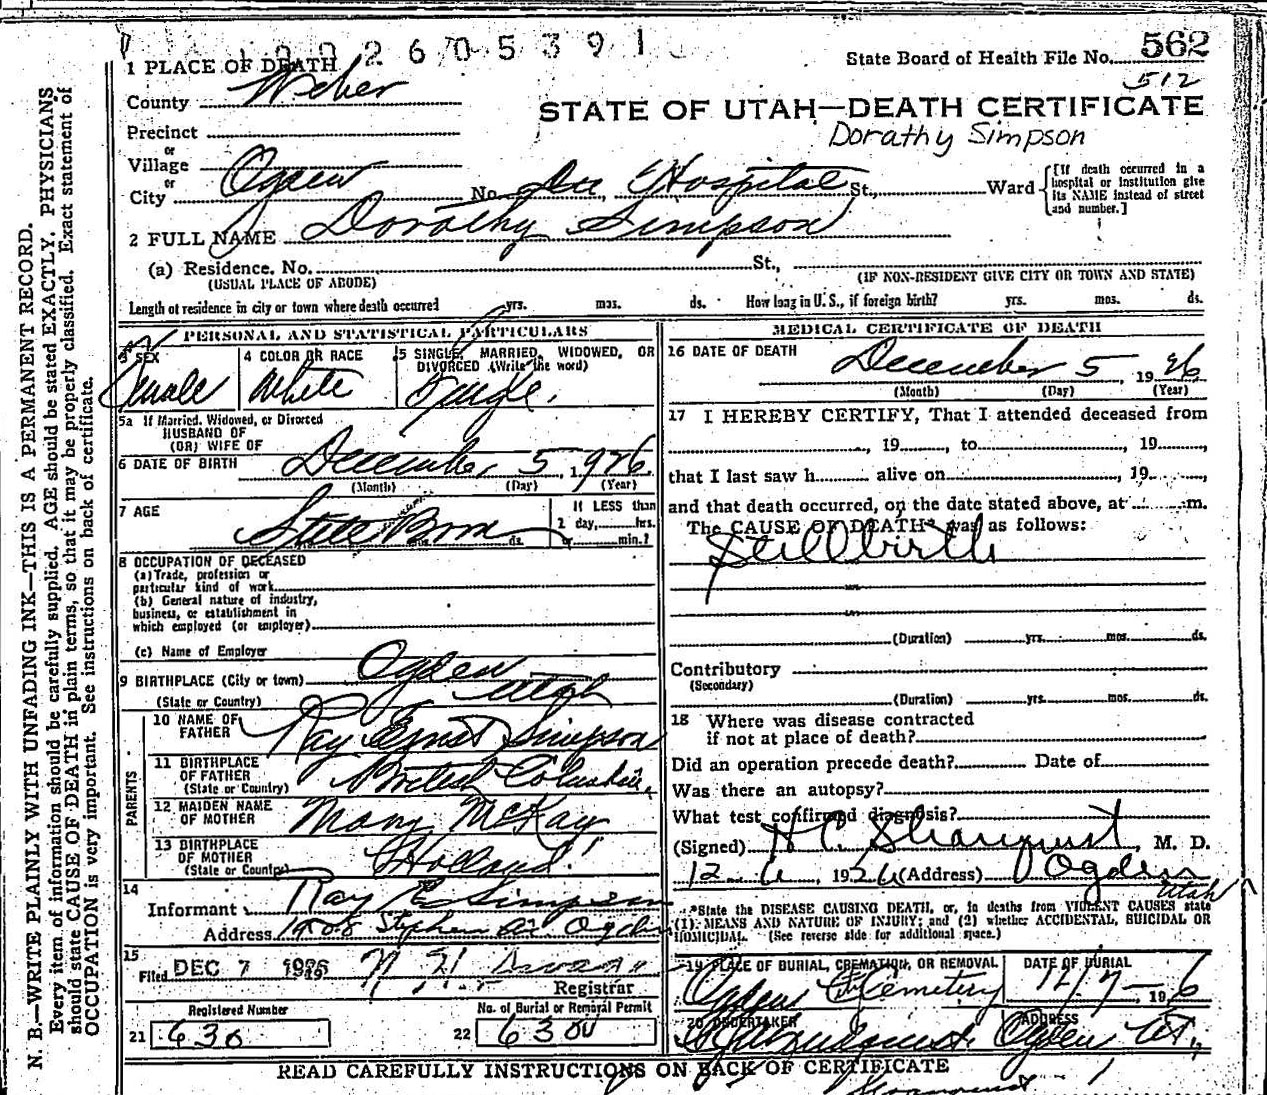 1 9 2 6 0 5 3 9 1
State Board of Health File No. 562
512
1 PLACE OF DEATH
County Weber
STATE OF UTAH—DEATH CERTIFICATE
Dorathy Simpson
Precinct
or
Village
or
City Ogden No. Dee Hospital St., Ward
[If death occurred in a hospital or institution give its NAME instead of street and number.]
2 FULL NAME Dorothy Simpson
(a) Residence. No. St.,
(USUAL PLACE OF ABODE) (IF NON-RESIDENT GIVE CITY OR TOWN AND STATE)
Length of residence in city or town where death occurred yrs. mos. ds. How long in U. S., if foreign birth? yrs. mos. ds.
PERSONAL AND STATISTICAL PARTICULARS
3 SEX
Female
4 COLOR OR RACE
White
5 SINGLE, MARRIED, WIDOWED, OR
DIVORCED (Write the word)
Single.
5a If Married, Widowed, or Divorced
HUSBAND OF
(OR) WIFE OF
6 DATE OF BIRTH December 5, 1926
(Month) (Day) (Year)
7 AGE
Still Born
mos. ds.
If LESS than
1 day, hrs.
or min.?
8 OCCUPATION OF DECEASED
(a) Trade, profession or
particular kind of work
(b) General nature of industry,
business, or establishment in
which employed (or employer)
(c) Name of Employer
9 BIRTHPLACE (City or town) Ogden
(State or Country) Utah
PARENTS
10 NAME OF
FATHER Ray Ernst Simpson
11 BIRTHPLACE
OF FATHER
(State or Country) British Columbia
12 MAIDEN NAME
OF MOTHER Mary McKay
13 BIRTHPLACE
OF MOTHER
(State or Country) Holland
14
Informant Ray E Simpson
Address Stephen Ogden
15
Filed DEC 7 1926
Registrar
Registered Number
21 630
No. of Burial or Removal Permit
22 6300
MEDICAL CERTIFICATE OF DEATH
16 DATE OF DEATH
December 5, 1926
(Month) (Day) (Year)
17 I HEREBY CERTIFY, That I attended deceased from
, 19 , to , 19
that I last saw h alive on , 19
and that death occurred, on the date stated above, at m.
The CAUSE OF DEATH* was as follows:
Stillbirth
(Duration) yrs. mos. ds.
Contributory
(Secondary)
(Duration) yrs. mos. ds.
18 Where was disease contracted
if not at place of death?
Did an operation precede death? Date of
Was there an autopsy?
What test confirmed diagnosis?
(Signed) H C Stranquist, M. D.
12 6, 1926 (Address) Ogden
Utah
*State the DISEASE CAUSING DEATH, or, in deaths from VIOLENT CAUSES state
(1) MEANS AND NATURE OF INJURY; and (2) whether ACCIDENTAL, SUICIDAL OR
HOMICIDAL. (See reverse side for additional space.)
19 PLACE OF BURIAL, CREMATION, OR REMOVAL
Ogden City Cemetery
DATE OF BURIAL
12/7 - 1926
20 UNDERTAKER
ADDRESS
Ogden UT.,
READ CAREFULLY INSTRUCTIONS ON BACK OF CERTIFICATE
N. B.—WRITE PLAINLY WITH UNFADING INK—THIS IS A PERMANENT RECORD.
Every item of information should be carefully supplied. AGE should be stated EXACTLY. PHYSICIANS
should state CAUSE OF DEATH in plain terms, so that it may be properly classified. Exact statement of
OCCUPATION is very important. See instructions on back of certificate.